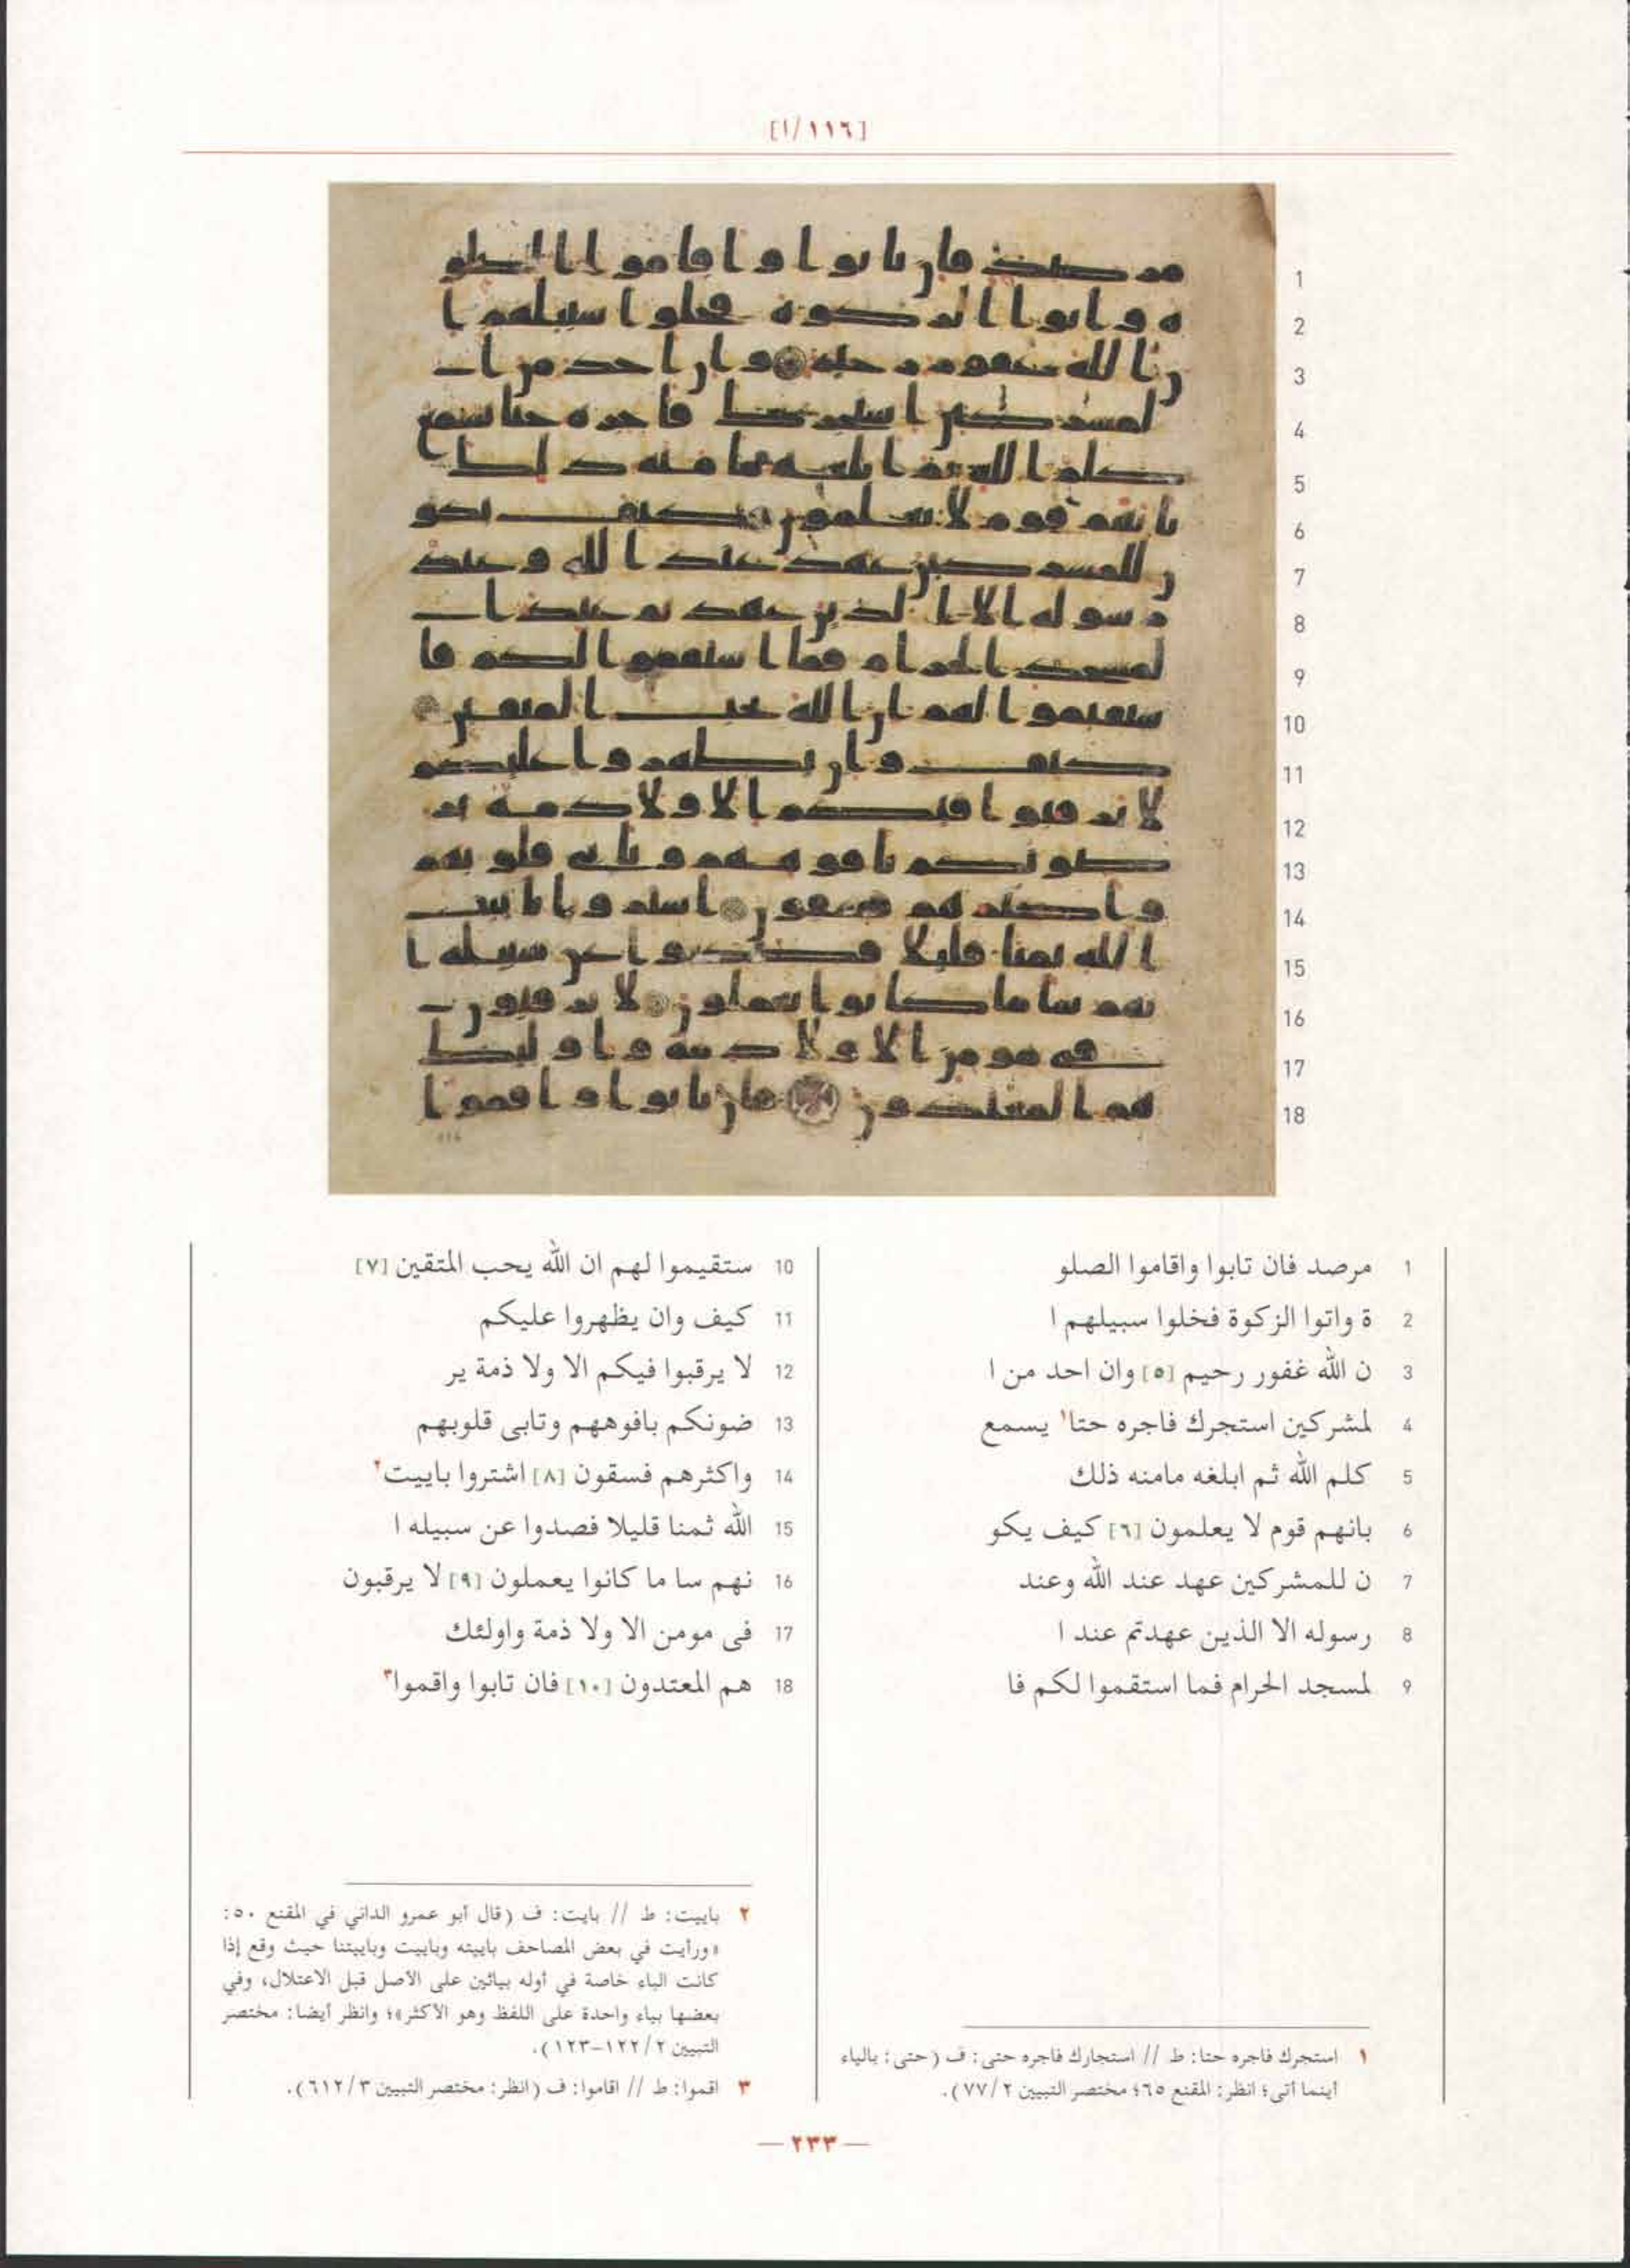 [١١٦/ا]
1 مرصد فان تابوا واقاموا الصلو
2 ة واتوا الزكوة فخلوا سبيلهم ا
3 ن الله غفور رحيم [٥] وان احد من ا
4 لمشركين استجرك فاجره حتا١ يسمع
5 كلم الله ثم ابلغه مامنه ذلك
6 بانهم قوم لا يعلمون [٦] كيف يكو
7 ن للمشركين عهد عند الله وعند
8 رسوله الا الذين عهدتم عند ا
9 لمسجد الحرام فما استقموا لكم فا
10 ستقيموا لهم ان الله يحب المتقين [٧]
11 كيف وان يظهروا عليكم
12 لا يرقبوا فيكم الا ولا ذمة ير
13 ضونكم بافوههم وتابى قلوبهم
14 واكثرهم فسقون [٨] اشتروا باييت٢
15 الله ثمنا قليلا فصدوا عن سبيله ا
16 نهم سا ما كانوا يعملون [٩] لا يرقبون
17 فى مومن الا ولا ذمة واولئك
18 هم المعتدون [١٠] فان تابوا واقموا٣
١ استجرك فاجره حتا: ط // استجارك فاجره حتى: ف (حتى؛ بالياء
أينما أتى؛ انظر: المقنع ٦٥؛ مختصر التبيين ٧٧/٢).
٢ باييت: ط // بايت: ف (قال أبو عمرو الداني في المقنع ٥٠:
«ورأيت في بعض المصاحف باييته وباييت وباييتنا حيث وقع إذا
كانت الباء خاصة في أوله بيائين على الأصل قبل الاعتلال، وفي
بعضها بياء واحدة على اللفظ وهو الأكثر»؛ وانظر أيضا: مختصر
التبيين ١٢٢/٢-١٢٣).
٣ اقموا: ط // اقاموا: ف (انظر: مختصر التبيين ٦١٢/٣).
— ٢٣٣ —